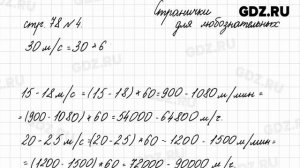 GDZ.RU
Странички
для любознательных
стр. 78 N 4.
30 м/с = 30 * 6
15-18 м/с = (15-18)*60 = 900-1080 м/мин =
= (900-1080) * 60 = 54000-64800 м/ч.
20-25 м/с = (20-25)*60 = 1200-1500 м/мин =
= (1200-1500) * 60 = 72000-90000 м/ч.
GDZ.RU